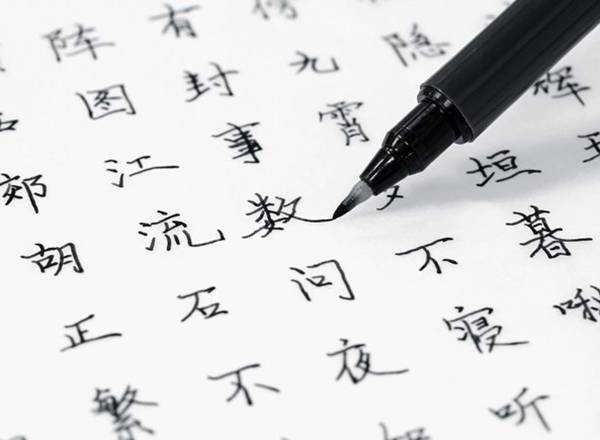 辉
隐垣暮啾
九霄夕不寝听
有封事数问夜
阵图江流石不
郊胡正繁